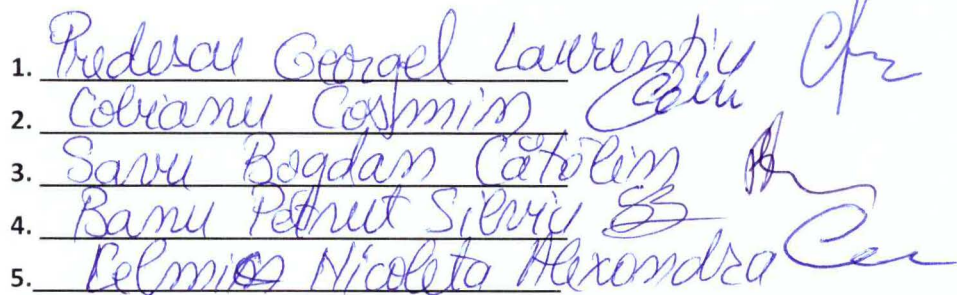 1. Predescu Georgel Laurențiu
2. Cobianu Cosmin
3. Savu Bogdan Cătălin
4. Banu Petruț Silviu
5. Nicoleta Alexandra